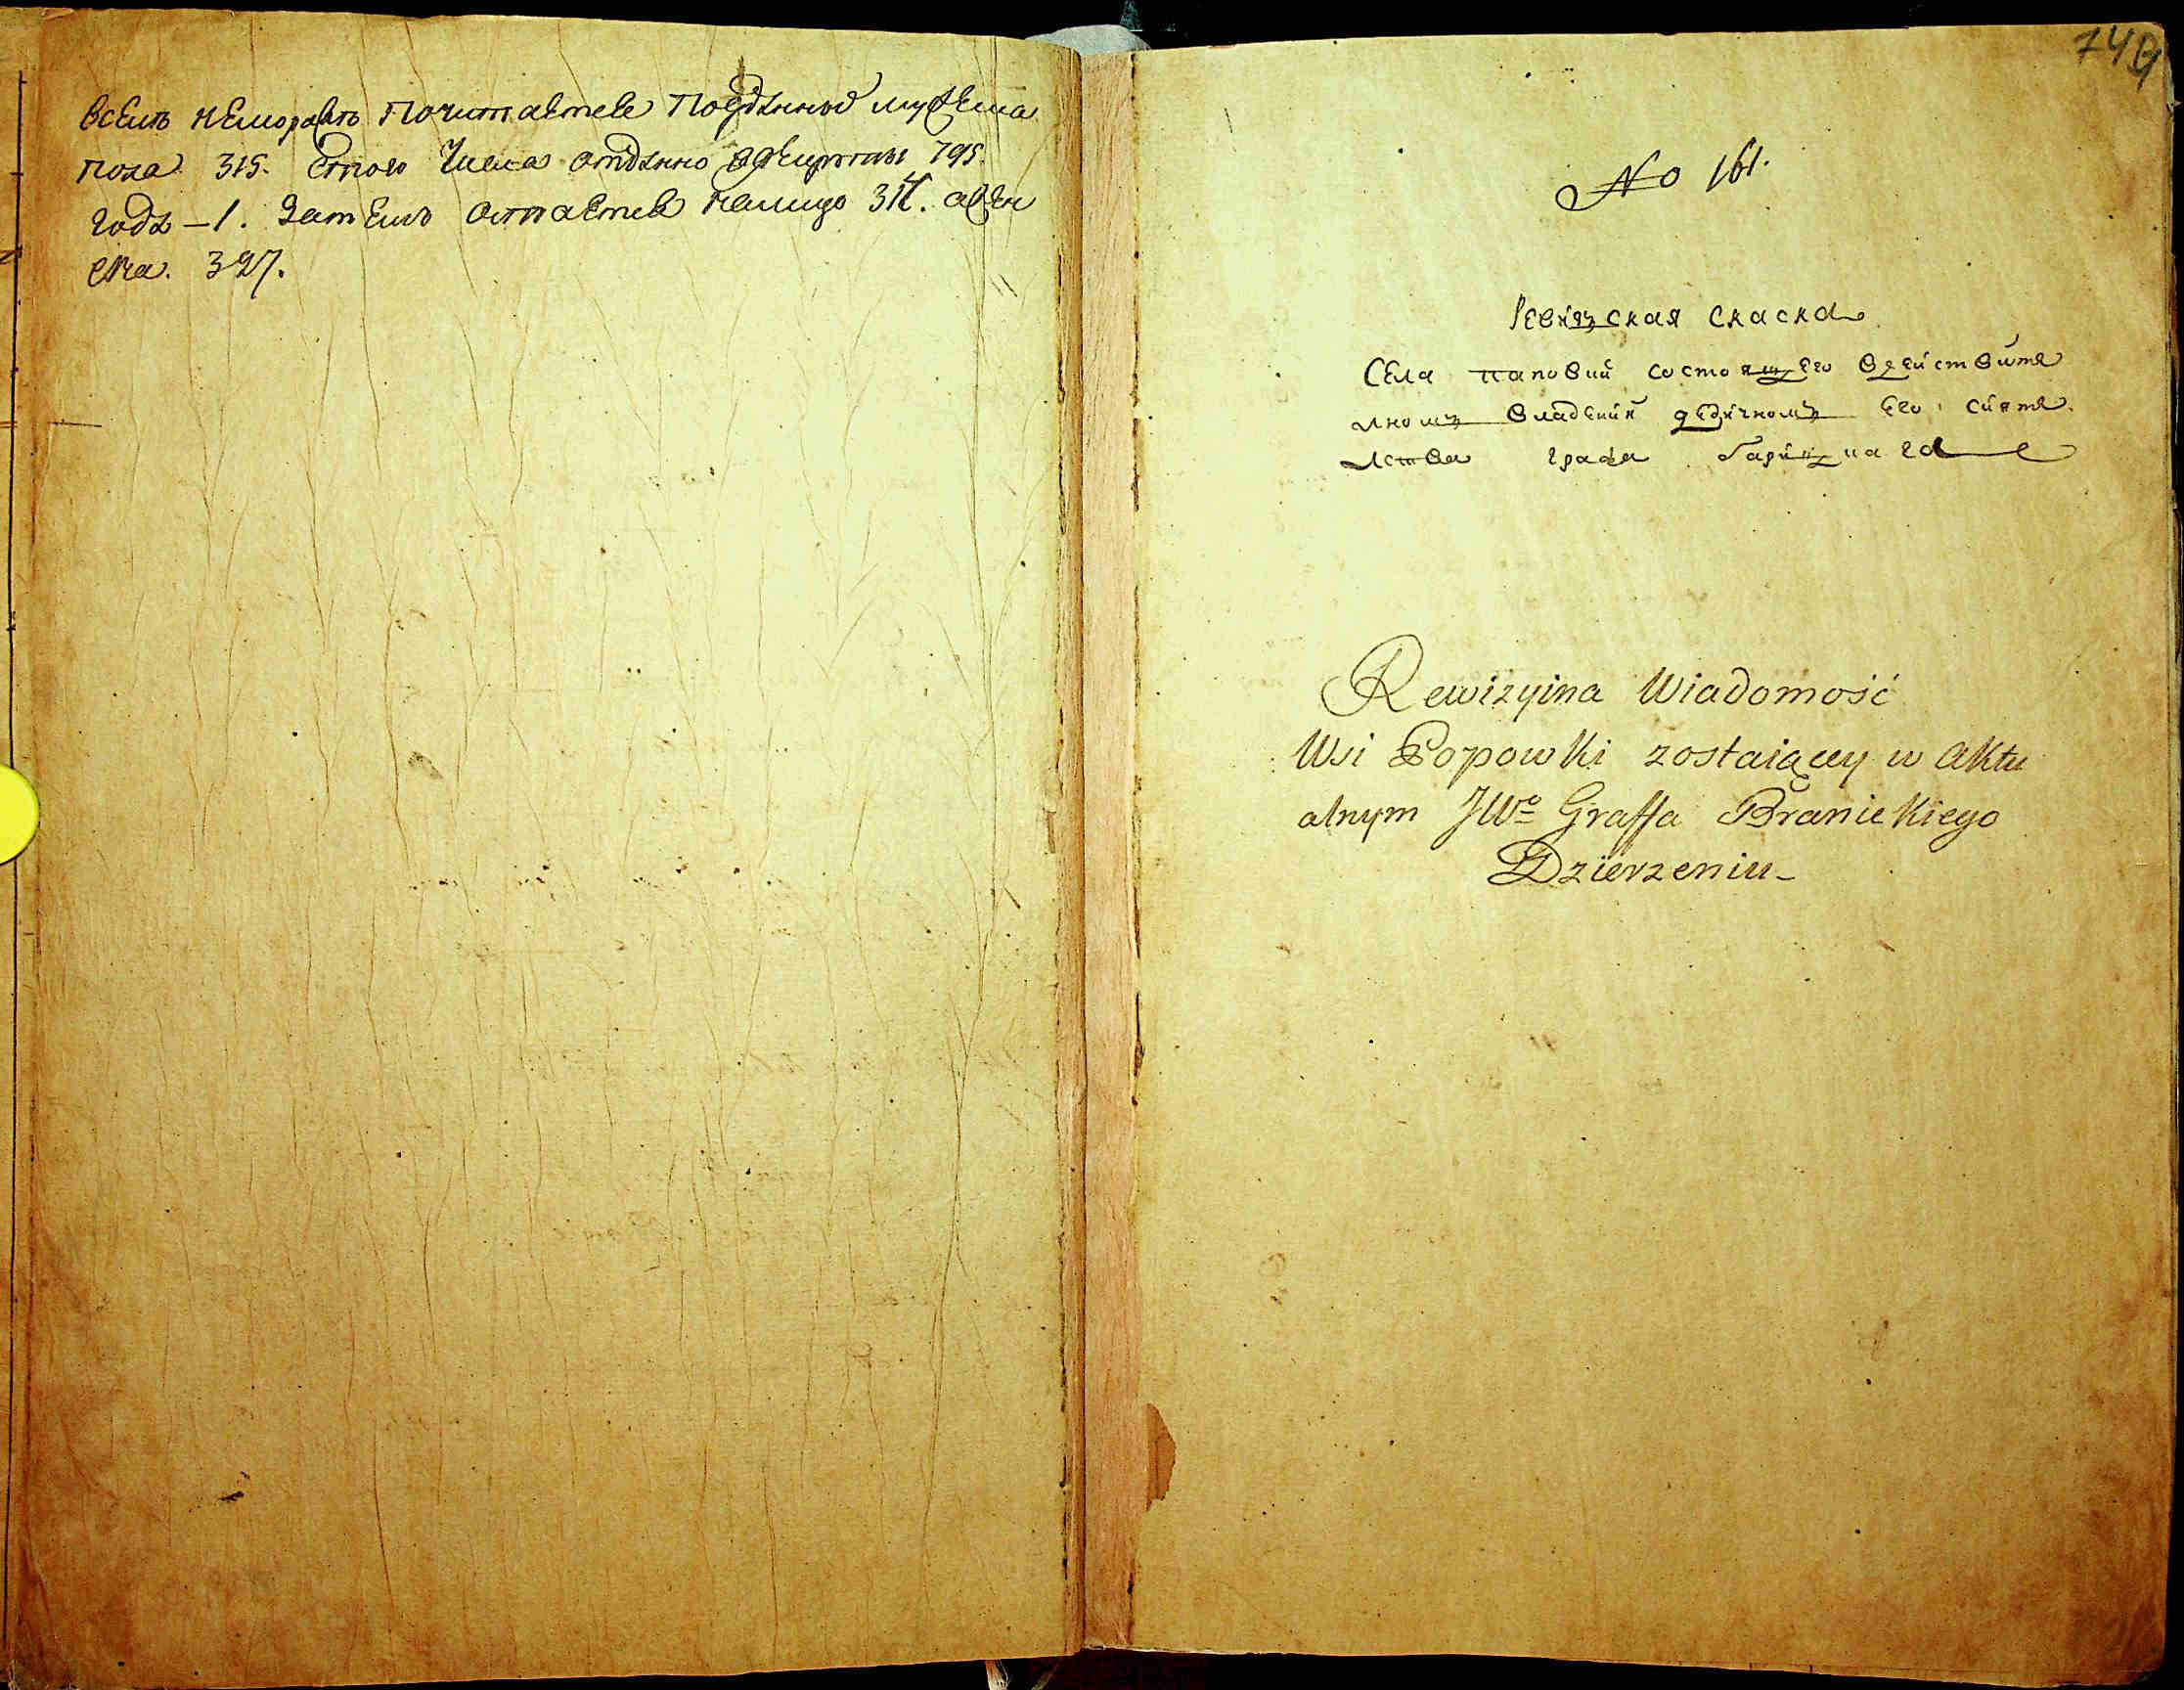 всемъ Неморажъ Почитаетсе Подѣнной мужеска
пола 315. Стого Числа отдѣнно врекруты 795.
годѣ – 1. Затемъ остаетсе налицо 314. ажен
ска. 327.
749
No 161.
Ревизская Скаска
Села поповки состоящего вдействите
лномъ владении дедичномъ его сияте
лства графа браницкаго
Rewizyina Wiadomość
Wsi Popowki zostaiącey w Aktu
alnym JWo Graffa Branickiego
Dzierzeniu_